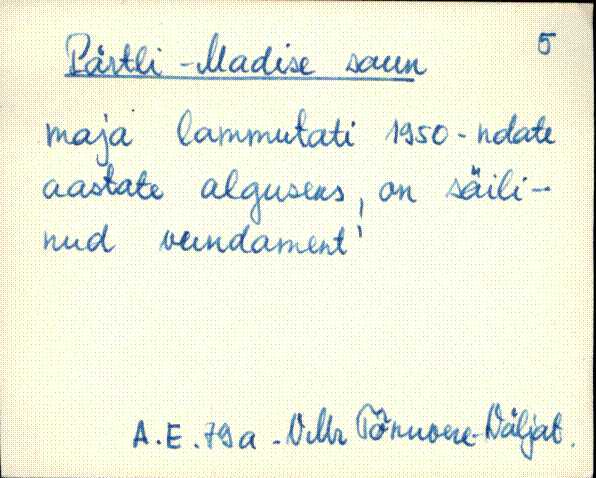 5
Pärtli-Madise saun
maja lammutati 1950-ndate
aastate alguseks, on säili-
nud vundament!
A.E. 79a - V.Mr Tõnuvere-Väljat.